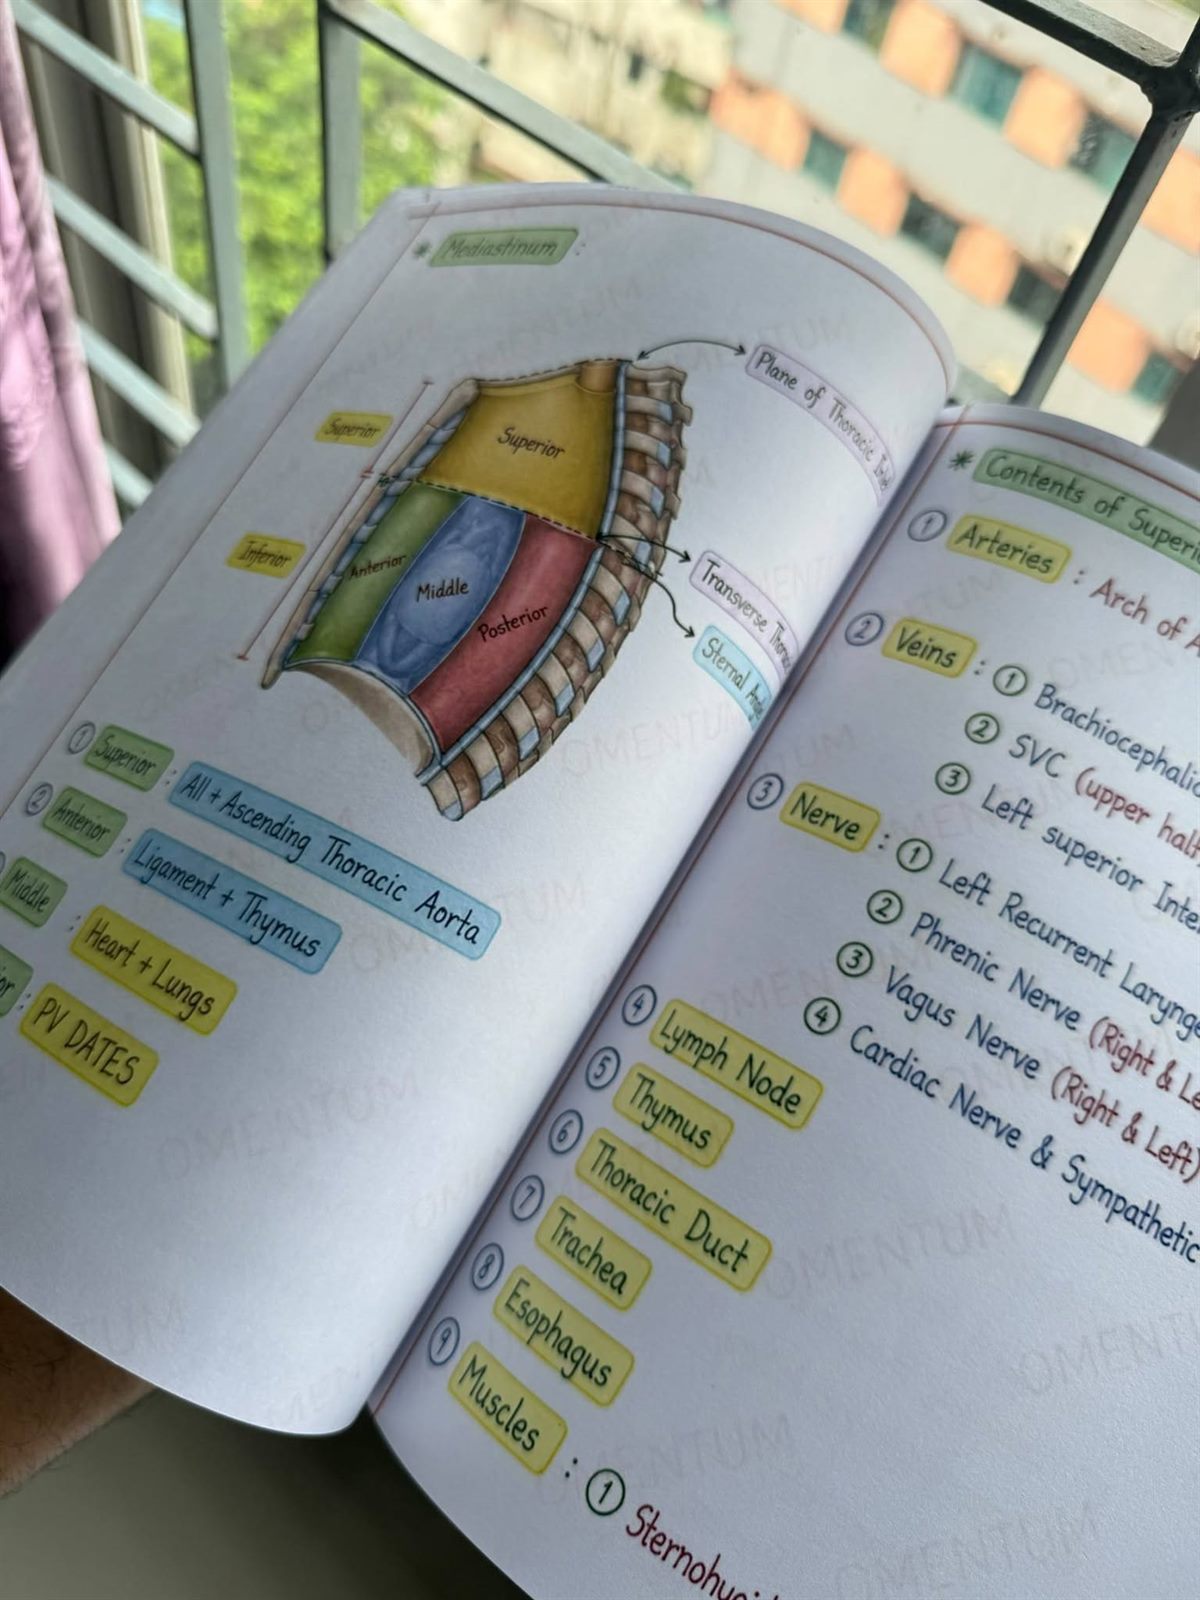 * Mediastinum :
Plane of Thoracic Inlet
Superior
Superior
Inferior
Anterior
Middle
Posterior
Transverse Thorac
Sternal Angl
① Superior : All + Ascending Thoracic Aorta
② Anterior : Ligament + Thymus
Middle : Heart + Lungs
or : PV DATES
* Contents of Superi
① Arteries : Arch of A
② Veins : ① Brachiocephalic
② SVC (upper half)
③ Left superior Inter
③ Nerve : ① Left Recurrent Larynge
② Phrenic Nerve (Right & Le
③ Vagus Nerve (Right & Left)
④ Cardiac Nerve & Sympathetic
④ Lymph Node
⑤ Thymus
⑥ Thoracic Duct
⑦ Trachea
⑧ Esophagus
⑨ Muscles : ① Sternohyoid
OMENTUM